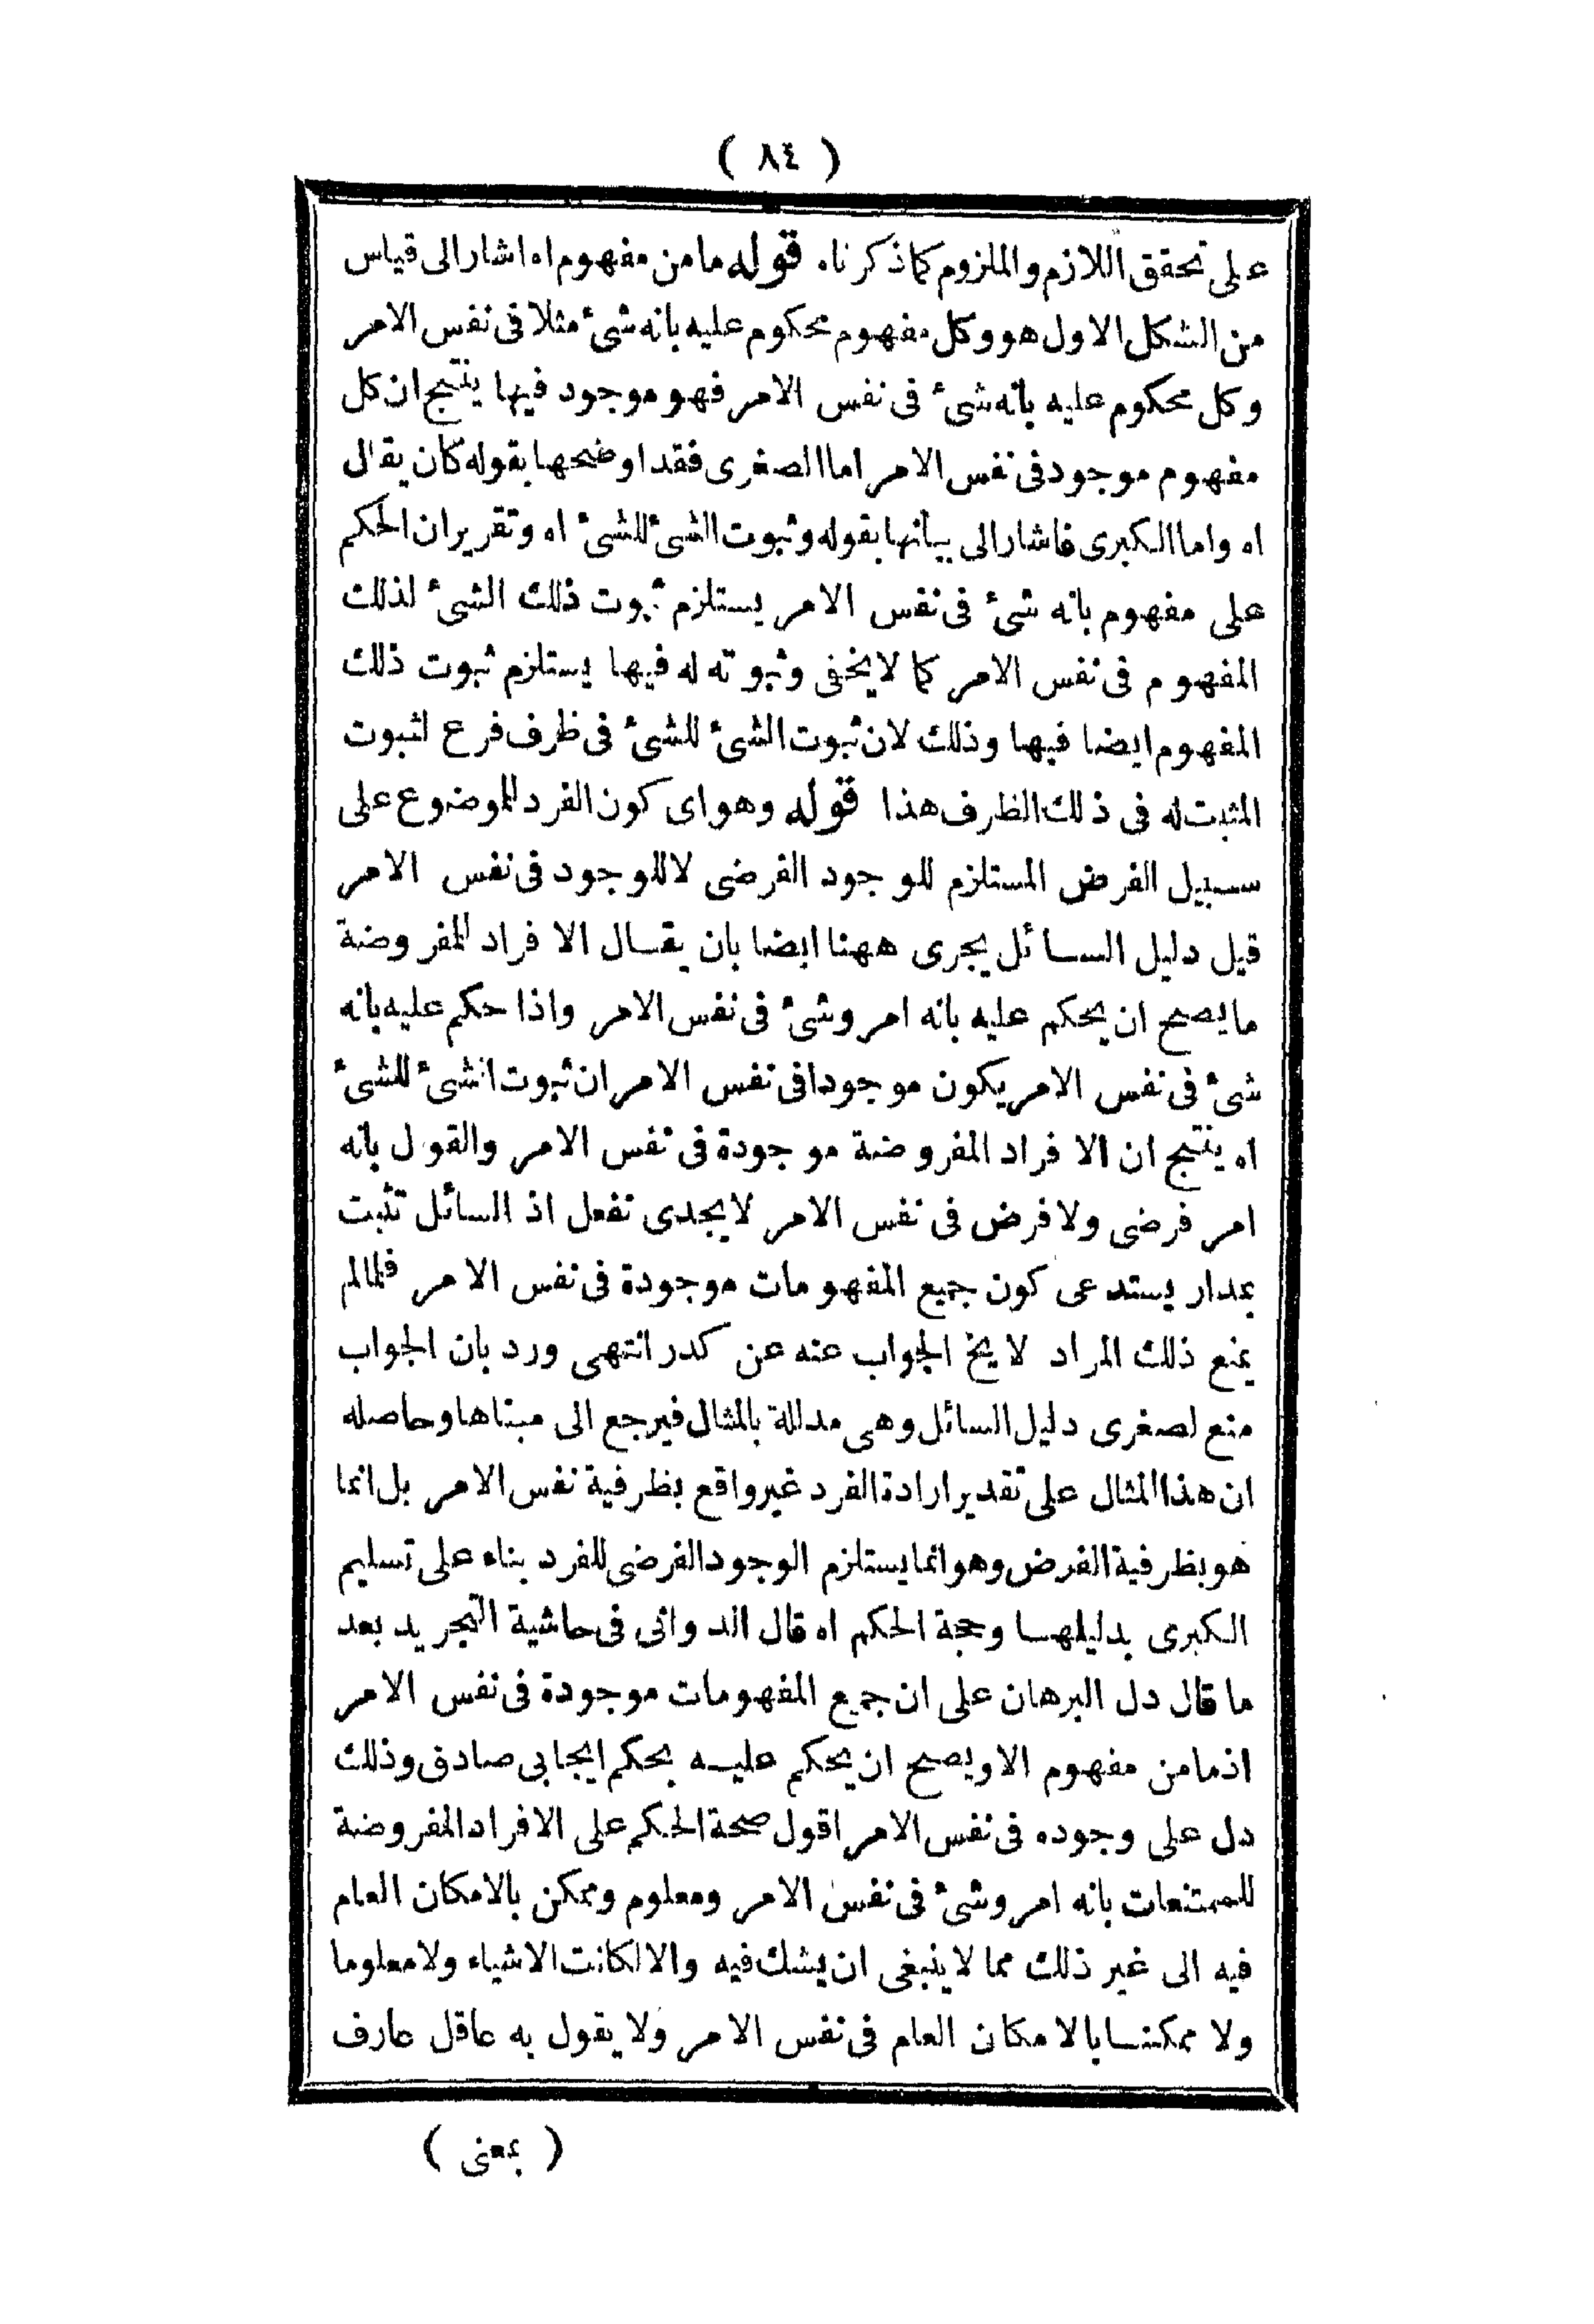 ( ٨٤ )
على تحقق اللازم والملزوم كما ذكرناه قوله ما من مفهوم اه اشار الى قياس
من الشكل الاول هو وكل مفهوم محكوم عليه بانه شئ مثلا فى نفس الامر
وكل محكوم عليه بانه شئ فى نفس الامر فهو موجود فيها ينتج ان كل
مفهوم موجود فى نفس الامر اما الصغرى فقد اوضحها بقوله كان يقال
اه واما الكبرى فاشار الى بيانها بقوله وثبوت الشئ للشئ اه وتقرير ان الحكم
على مفهوم بانه شئ فى نفس الامر يستلزم ثبوت ذلك الشئ لذلك
المفهوم فى نفس الامر كما لا يخفى وثبوته له فيها يستلزم ثبوت ذلك
المفهوم ايضا فيها وذلك لان ثبوت الشئ للشئ فى ظرف فرع لثبوت
المثبت له فى ذلك الظرف هذا قوله وهو اى كون الفرد الموضوع على
سبيل الفرض المستلزم للوجود الفرضى لا للوجود فى نفس الامر
قيل دليل السائل يجرى ههنا ايضا بان يقال الافراد المفروضة
ما يصح ان يحكم عليه بانه امر وشئ فى نفس الامر واذا حكم عليه بانه
شئ فى نفس الامر يكون موجودا فى نفس الامر ان ثبوت الشئ للشئ
اه ينتج ان الافراد المفروضة موجودة فى نفس الامر والقول بانه
امر فرضى ولا فرض فى نفس الامر لا يجدى نفعل اذ السائل تثبت
بمدار يستدعى كون جميع المفهومات موجودة فى نفس الامر فلما لم
يمنع ذلك المراد لا يخ الجواب عنه عن كدر انتهى ورد بان الجواب
منع لصغرى دليل السائل وهى مدللة بالمثال فيرجع الى مبناها وحاصله
ان هذا المثال على تقدير ارادة الفرد غير واقع بظرفية نفس الامر بل انما
هو بظرفية الفرض وهو انما يستلزم الوجود الفرضى للفرد بناء على تسليم
الكبرى بدليلها وحجة الحكم اه قال الدوانى فى حاشية التجريد بعد
ما قال دل البرهان على ان جميع المفهومات موجودة فى نفس الامر
اذ ما من مفهوم الا ويصح ان يحكم عليه بحكم ايجابى صادق وذلك
دل على وجوده فى نفس الامر اقول صحة الحكم على الافراد المفروضة
للممتنعات بانه امر وشئ فى نفس الامر ومعلوم وممكن بالامكان العام
فيه الى غير ذلك مما لا ينبغى ان يشك فيه والا لكانت الاشياء ولا معلوما
ولا ممكنا بالامكان العام فى نفس الامر ولا يقول به عاقل عارف
( بمعنى )